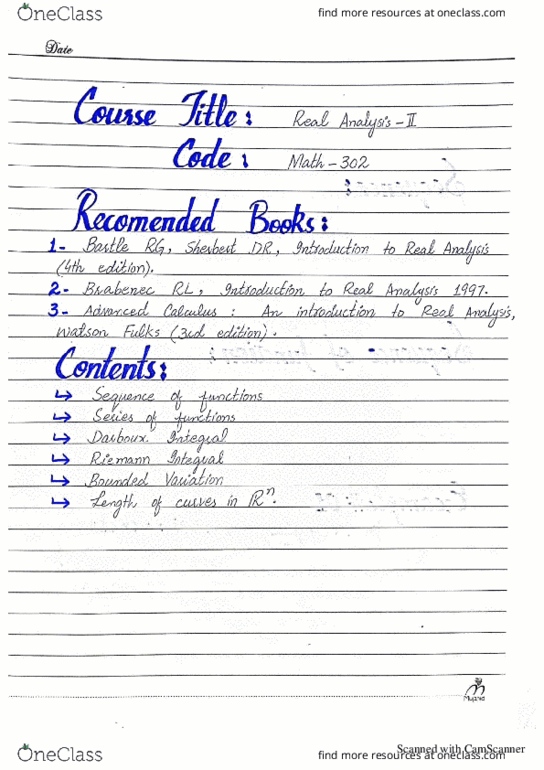 OneClass
find more resources at oneclass.com
Date
Course Title: Real Analysis-II
Code: Math-302
Recomended Books:
1- Bartle RG, Sherbert DR, Introduction to Real Analysis
(4th edition).
2- Brabenec RL, Introduction to Real Analysis 1997.
3- Advanced Calculus: An introduction to Real Analysis,
Watson Fulks (3rd edition).
Contents:
↳ Sequence of functions
↳ Series of functions
↳ Darboux. Integral
↳ Riemann Integral
↳ Bounded Variation
↳ Length of curves in ℝⁿ.
Mujahid
Scanned with CamScanner
OneClass
find more resources at oneclass.com